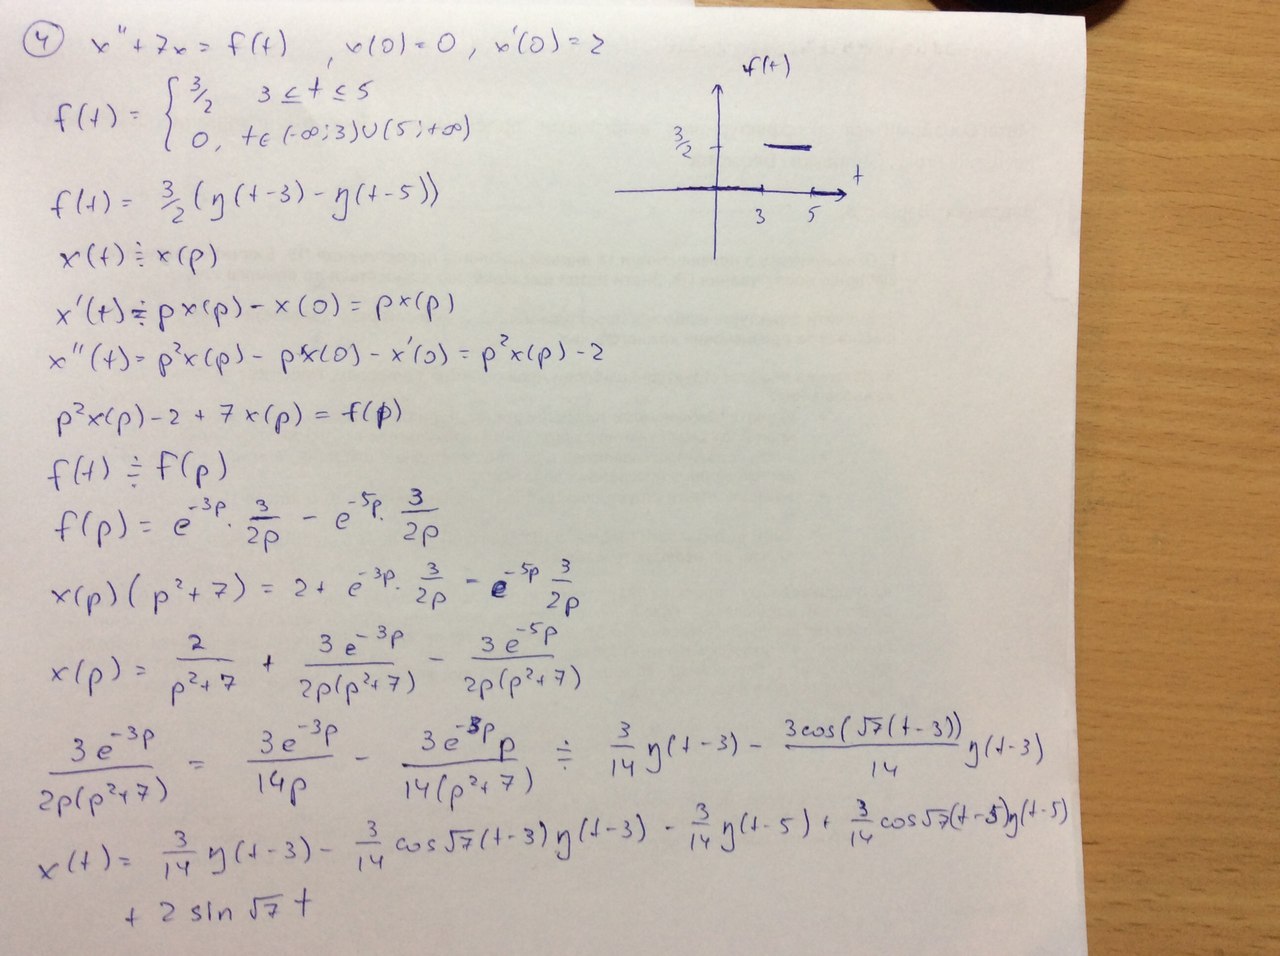 ④ x'' + 7x = f(t) , x(0) = 0, x'(0) = 2
f(t) = { 3/2 3 ≤ t ≤ 5
0, t ∈ (-∞; 3) ∪ (5; +∞)
f(t)
3/2
t
3 5
f(t) = 3/2 (η(t-3) - η(t-5))
x(t) ≑ x(p)
x'(t) ≑ px(p) - x(0) = px(p)
x''(t) = p²x(p) - px(0) - x'(0) = p²x(p) - 2
p²x(p) - 2 + 7x(p) = f(p)
f(t) ≑ f(p)
f(p) = e^{-3p} · 3/2p - e^{-5p} · 3/2p
x(p)(p² + 7) = 2 + e^{-3p} · 3/2p - e^{-5p} 3/2p
x(p) = 2/(p²+7) + 3e^{-3p}/2p(p²+7) - 3e^{-5p}/2p(p²+7)
3e^{-3p}/2p(p²+7) = 3e^{-3p}/14p - 3e^{-3p}p/14(p²+7) ≑ 3/14 η(t-3) - 3cos(√7(t-3))/14 η(t-3)
x(t) = 3/14 η(t-3) - 3/14 cos√7(t-3)η(t-3) - 3/14 η(t-5) + 3/14 cos√7(t-5)η(t-5)
+ 2 sin √7 t